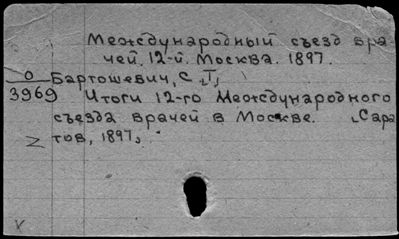 Международный съезд вра-
чей. 12-й. Москва. 1897.
О Бартошевич, С.Т.
3969 Итоги 12-го Международного
съезда врачей в Москве. Сара
тов, 1897,